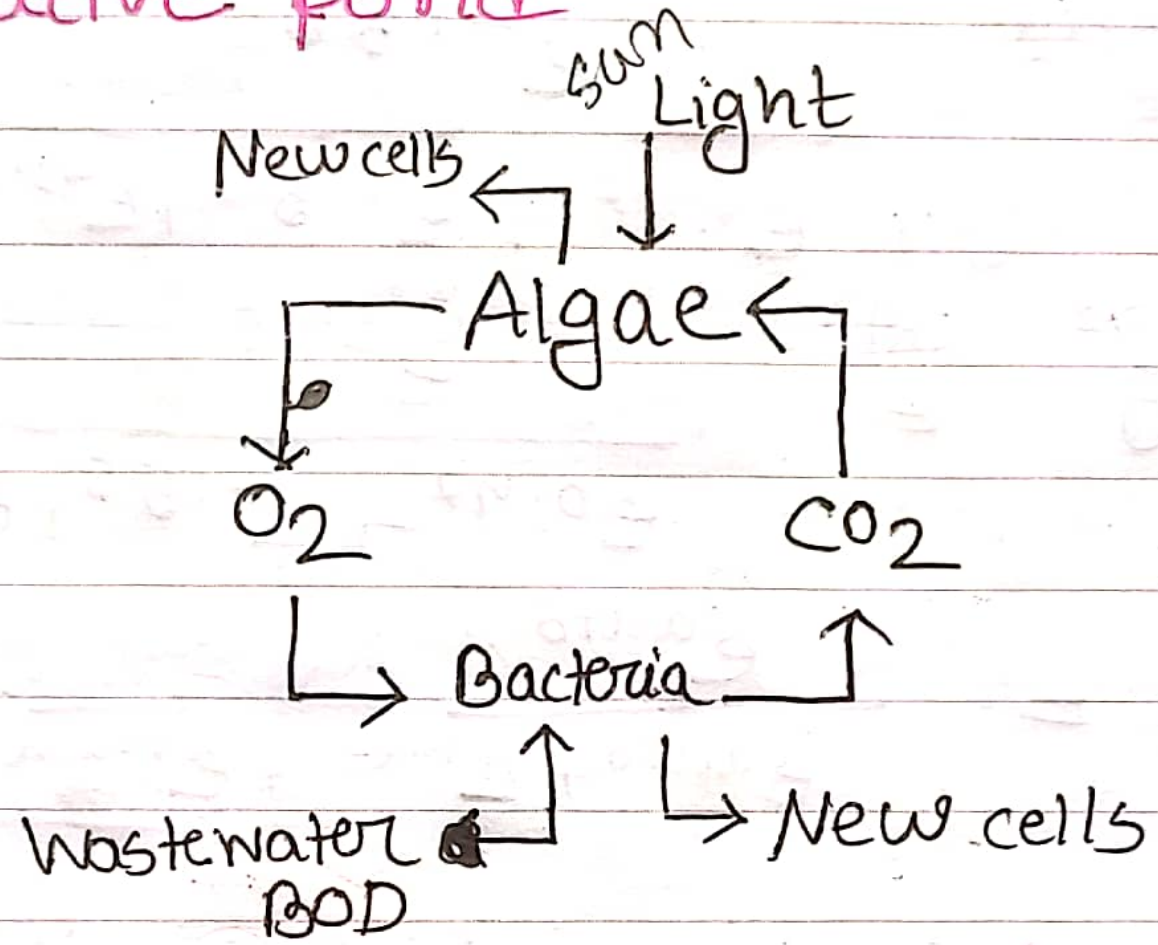 pond
sun
Light
New cells
Algae
O2
CO2
Bacteria
Wastewater
BOD
New cells